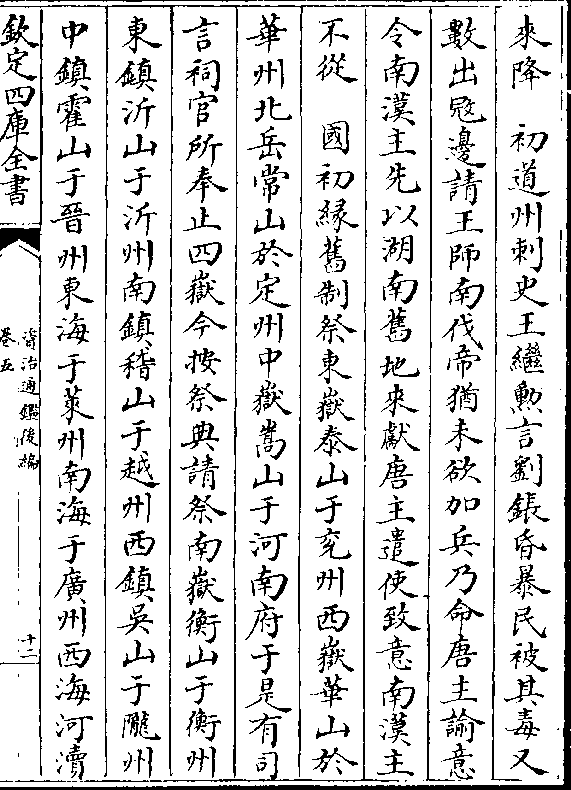 來降　初道州刺史王繼勲言劉鋹昏暴民被其毒又
數出宼邊請王師南伐帝猶未欲加兵乃命唐主諭意
令南漢主先以湖南舊地來獻唐主遣使致意南漢主
不從　國初緣舊制祭東嶽泰山于兖州西嶽華山於
華州北岳常山於定州中嶽嵩山于河南府于是有司
言祠官所奉止四嶽今按祭典請祭南嶽衡山于衡州
東鎮沂山于沂州南鎮稽山于越州西鎮吳山于隴州
中鎮霍山于晉州東海于萊州南海于廣州西海河瀆
欽定四庫全書
資治通鑑後編
卷五
十二